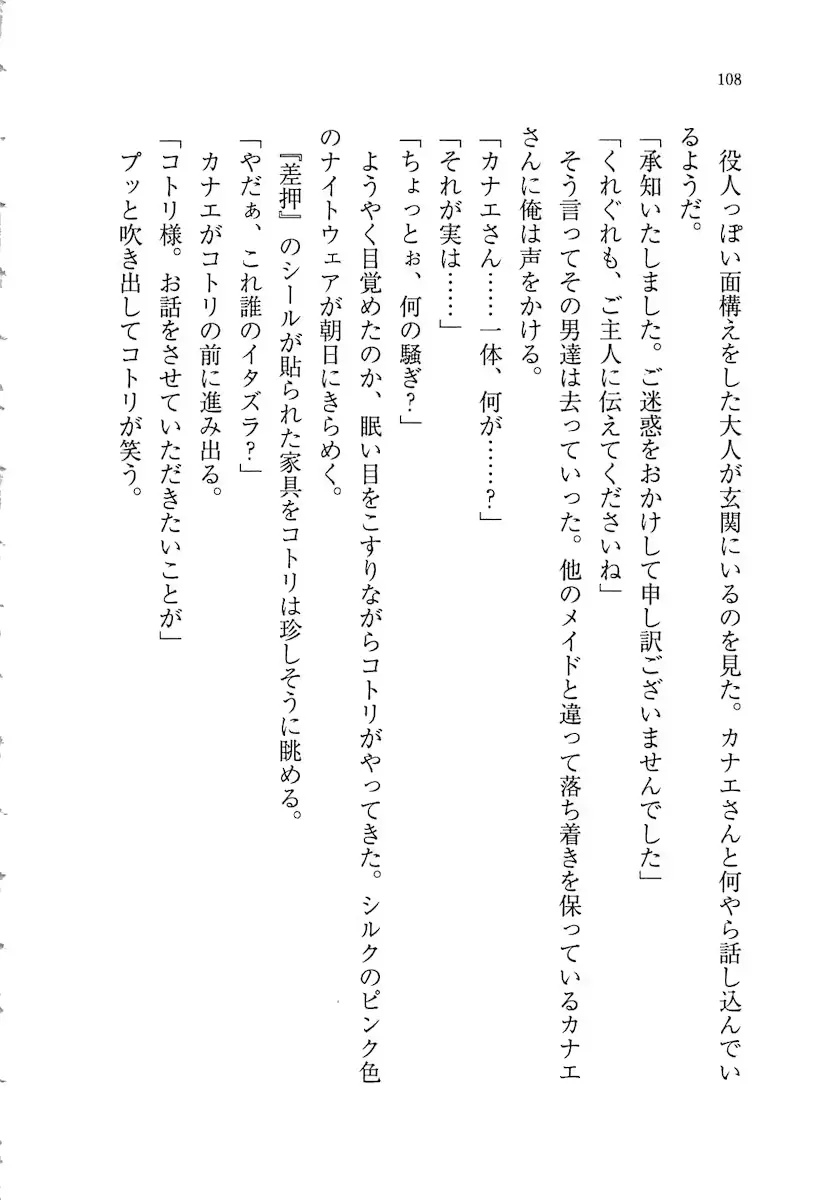 108
役人っぽい面構えをした大人が玄関にいるのを見た。カナエさんと何やら話し込んでい
るようだ。
「承知いたしました。ご迷惑をおかけして申し訳ございませんでした」
「くれぐれも、ご主人に伝えてくださいね」
そう言ってその男達は去っていった。他のメイドと違って落ち着きを保っているカナエ
さんに俺は声をかける。
「カナエさん……一体、何が……?」
「それが実は……」
「ちょっとぉ、何の騒ぎ?」
ようやく目覚めたのか、眠い目をこすりながらコトリがやってきた。シルクのピンク色
のナイトウェアが朝日にきらめく。
『差押』のシールが貼られた家具をコトリは珍しそうに眺める。
「やだぁ、これ誰のイタズラ?」
カナエがコトリの前に進み出る。
「コトリ様。お話をさせていただきたいことが」
プッと吹き出してコトリが笑う。